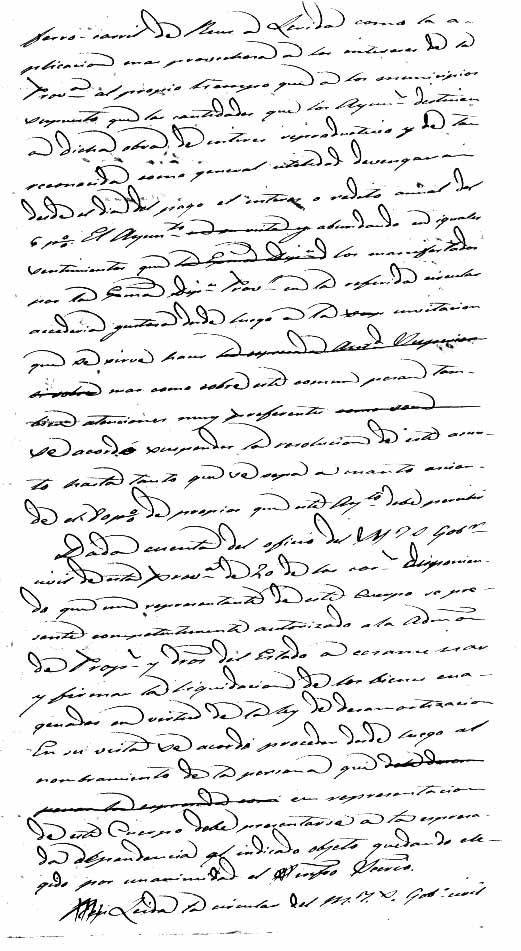 ferro-carril de Reus a Lerida como la a-
plicacion mas provechosa a los intereses de la
Prov.ª al propio tiempo que a los municipios
supuesto que las cantidades que los Ayun.s destinen
a dicha obra de interes reproductivo y de tan
reconocida como general utilidad devengaran
desde el dia del pago el interes o redito anual del
6 p.% El Ayunt.to y abundando en iguales
sentimientos que los manifestados
por la Exma Dip.n Prov.l en la referida circular
accederia gustoso desde luego a la invitacion
que se sirve hacer
mas como sobre este comun pesan tam-
bien atenciones muy preferentes
se acordó suspender la resolucion de este asun-
to hasta tanto que se sepa a cuanto ascien-
de el 80 p.% de propios que este Ay.to debe percibir
Dada cuenta del oficio del M. I. S. Gob.r
civil de esta Prov.ª de 20 de los cor.s disponien-
do que un representante de este Cuerpo se pre-
sente competentemente autorizado a la Admon
de Prop.s y dros del Estado a ecsaminar
y firmar la liquidacion de los bienes ena-
genados en virtud de la ley de desamortizacion
En su vista se acordó proceder desde luego al
nombramiento de la persona que
en representacion
de este Cuerpo debe presentarse a la espresa-
da dependencia al indicado objeto quedando ele-
gido por unanimidad el
Leida la circular del M. I. S. Gob.r civil